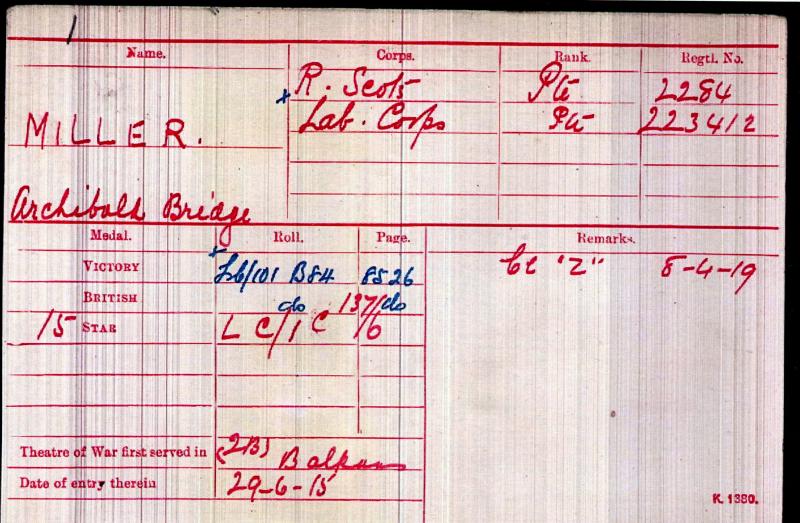 1
Name. Corps. Rank. Regtl. No.
x R. Scots Pte 2284
MILLER. Lab. Corps Pte 223412
Archibald Bridge
Medal. Roll. Page. Remarks.
VICTORY x Lb/101 B84 8526 Cl "Z" 8-4-19
BRITISH do 137/do
15 STAR L C/1 C 6
Theatre of War first served in (2B) Balkans
Date of entry therein 29-6-15
K. 1380.